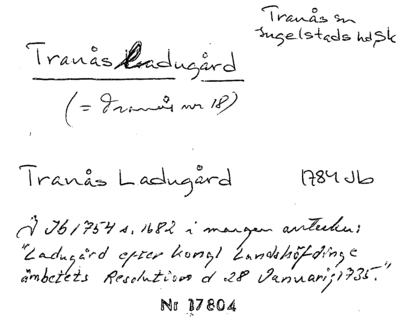 Tranås sn
Ingelstads hd Sk
Tranås Ladugård
(= Tranås nr 18)
Tranås Ladugård 1784 Jb
I Jb 1754 s. 1682 i margen anteckn:
"Ladugård efter Kongl Landshöfdinge
ämbetets Resolution d 28 Januarij 1735."
Nr 17804